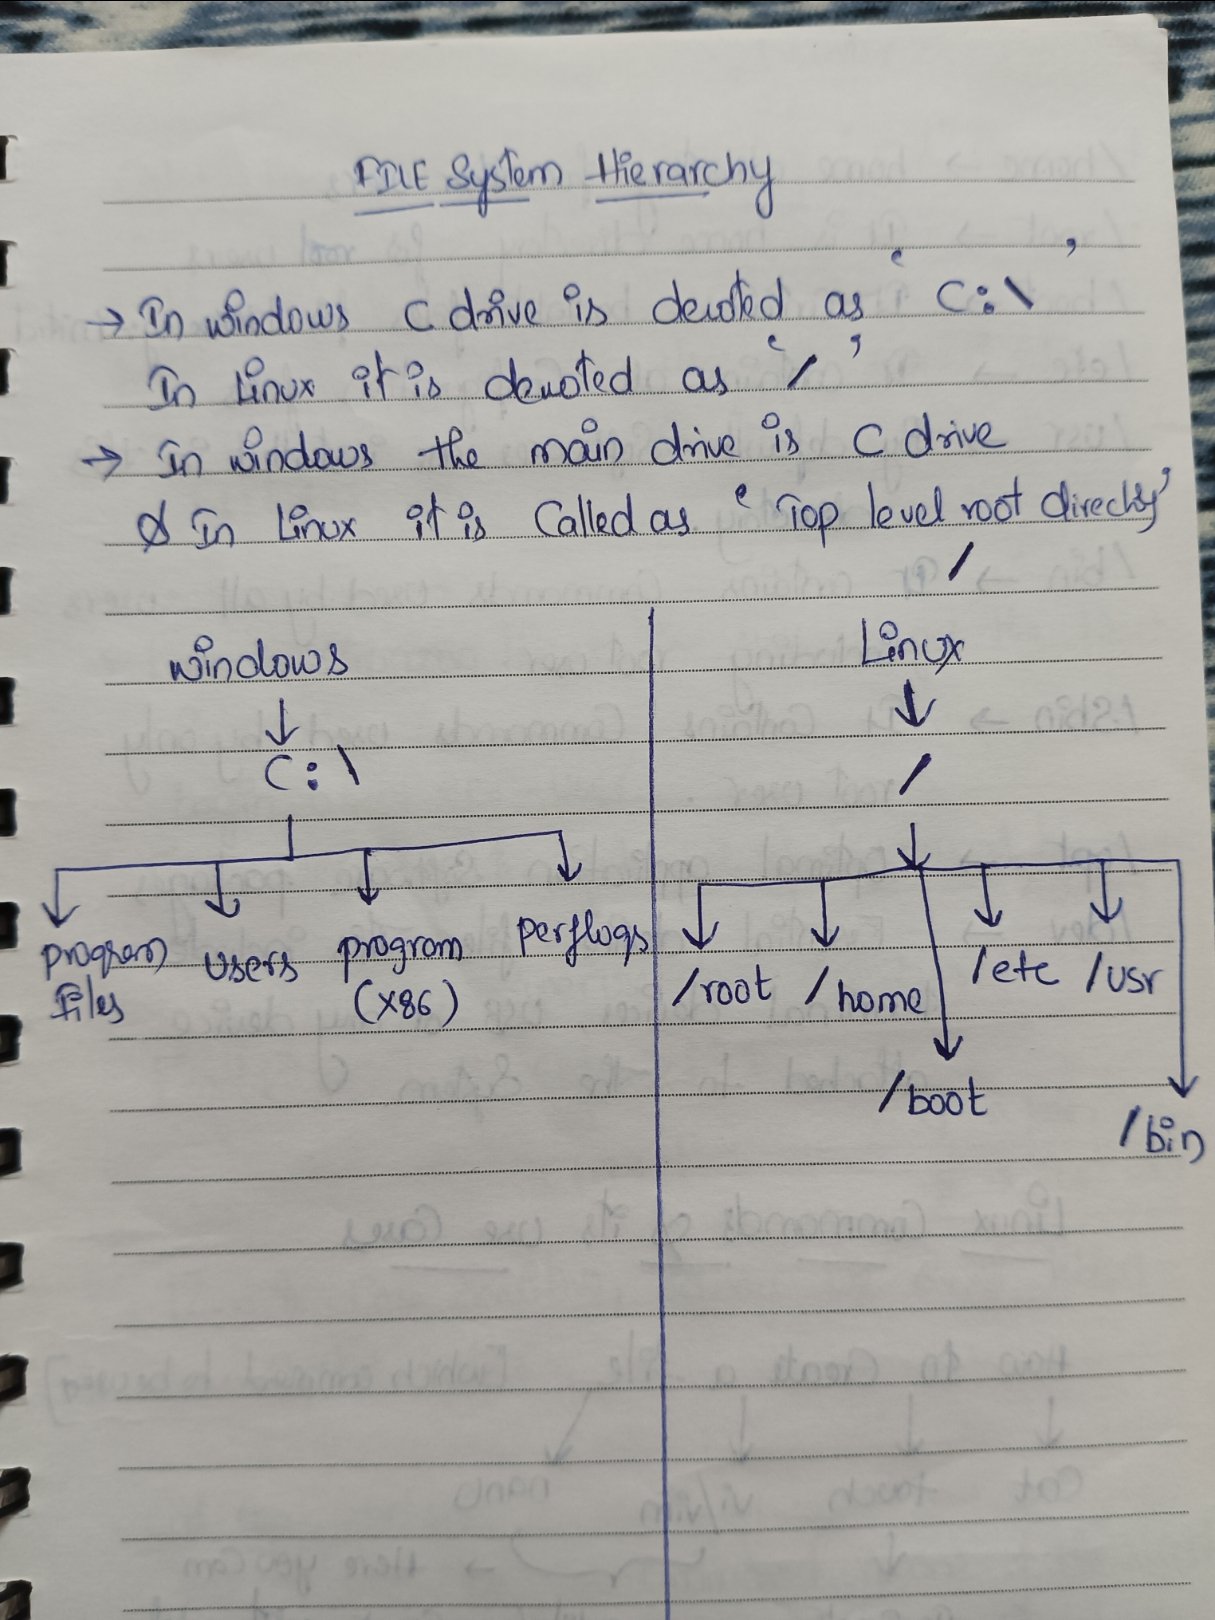 FILE System Hierarchy
→ In windows C drive is denoted as ‘ C:\ ’
In Linux it is denoted as ‘ / ’
→ In windows the main drive is C drive
In Linux it is Called as ‘ Top level root directry’
/
windows
Linux
C:\
/
program Files
users
program (X86)
perflogs
/root
/home
/etc
/usr
/boot
/bin